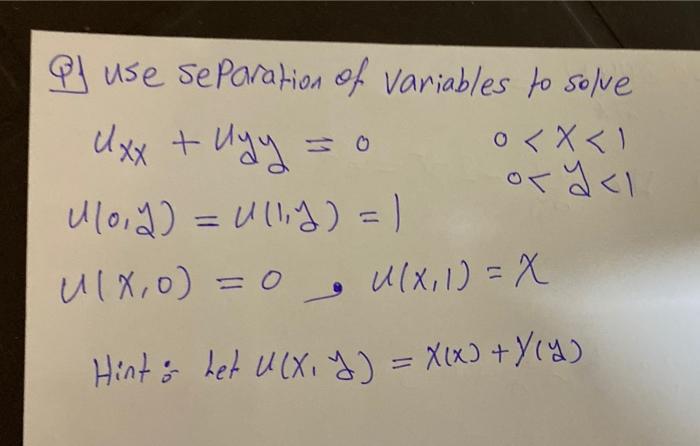 Q) use separation of variables to solve
Uxx + Uyy = 0 0 < X < 1
0 < y < 1
U(0,y) = U(1,y) = 1
U(X,0) = 0 , U(X,1) = X
Hint: Let U(X,y) = X(x) + Y(y)